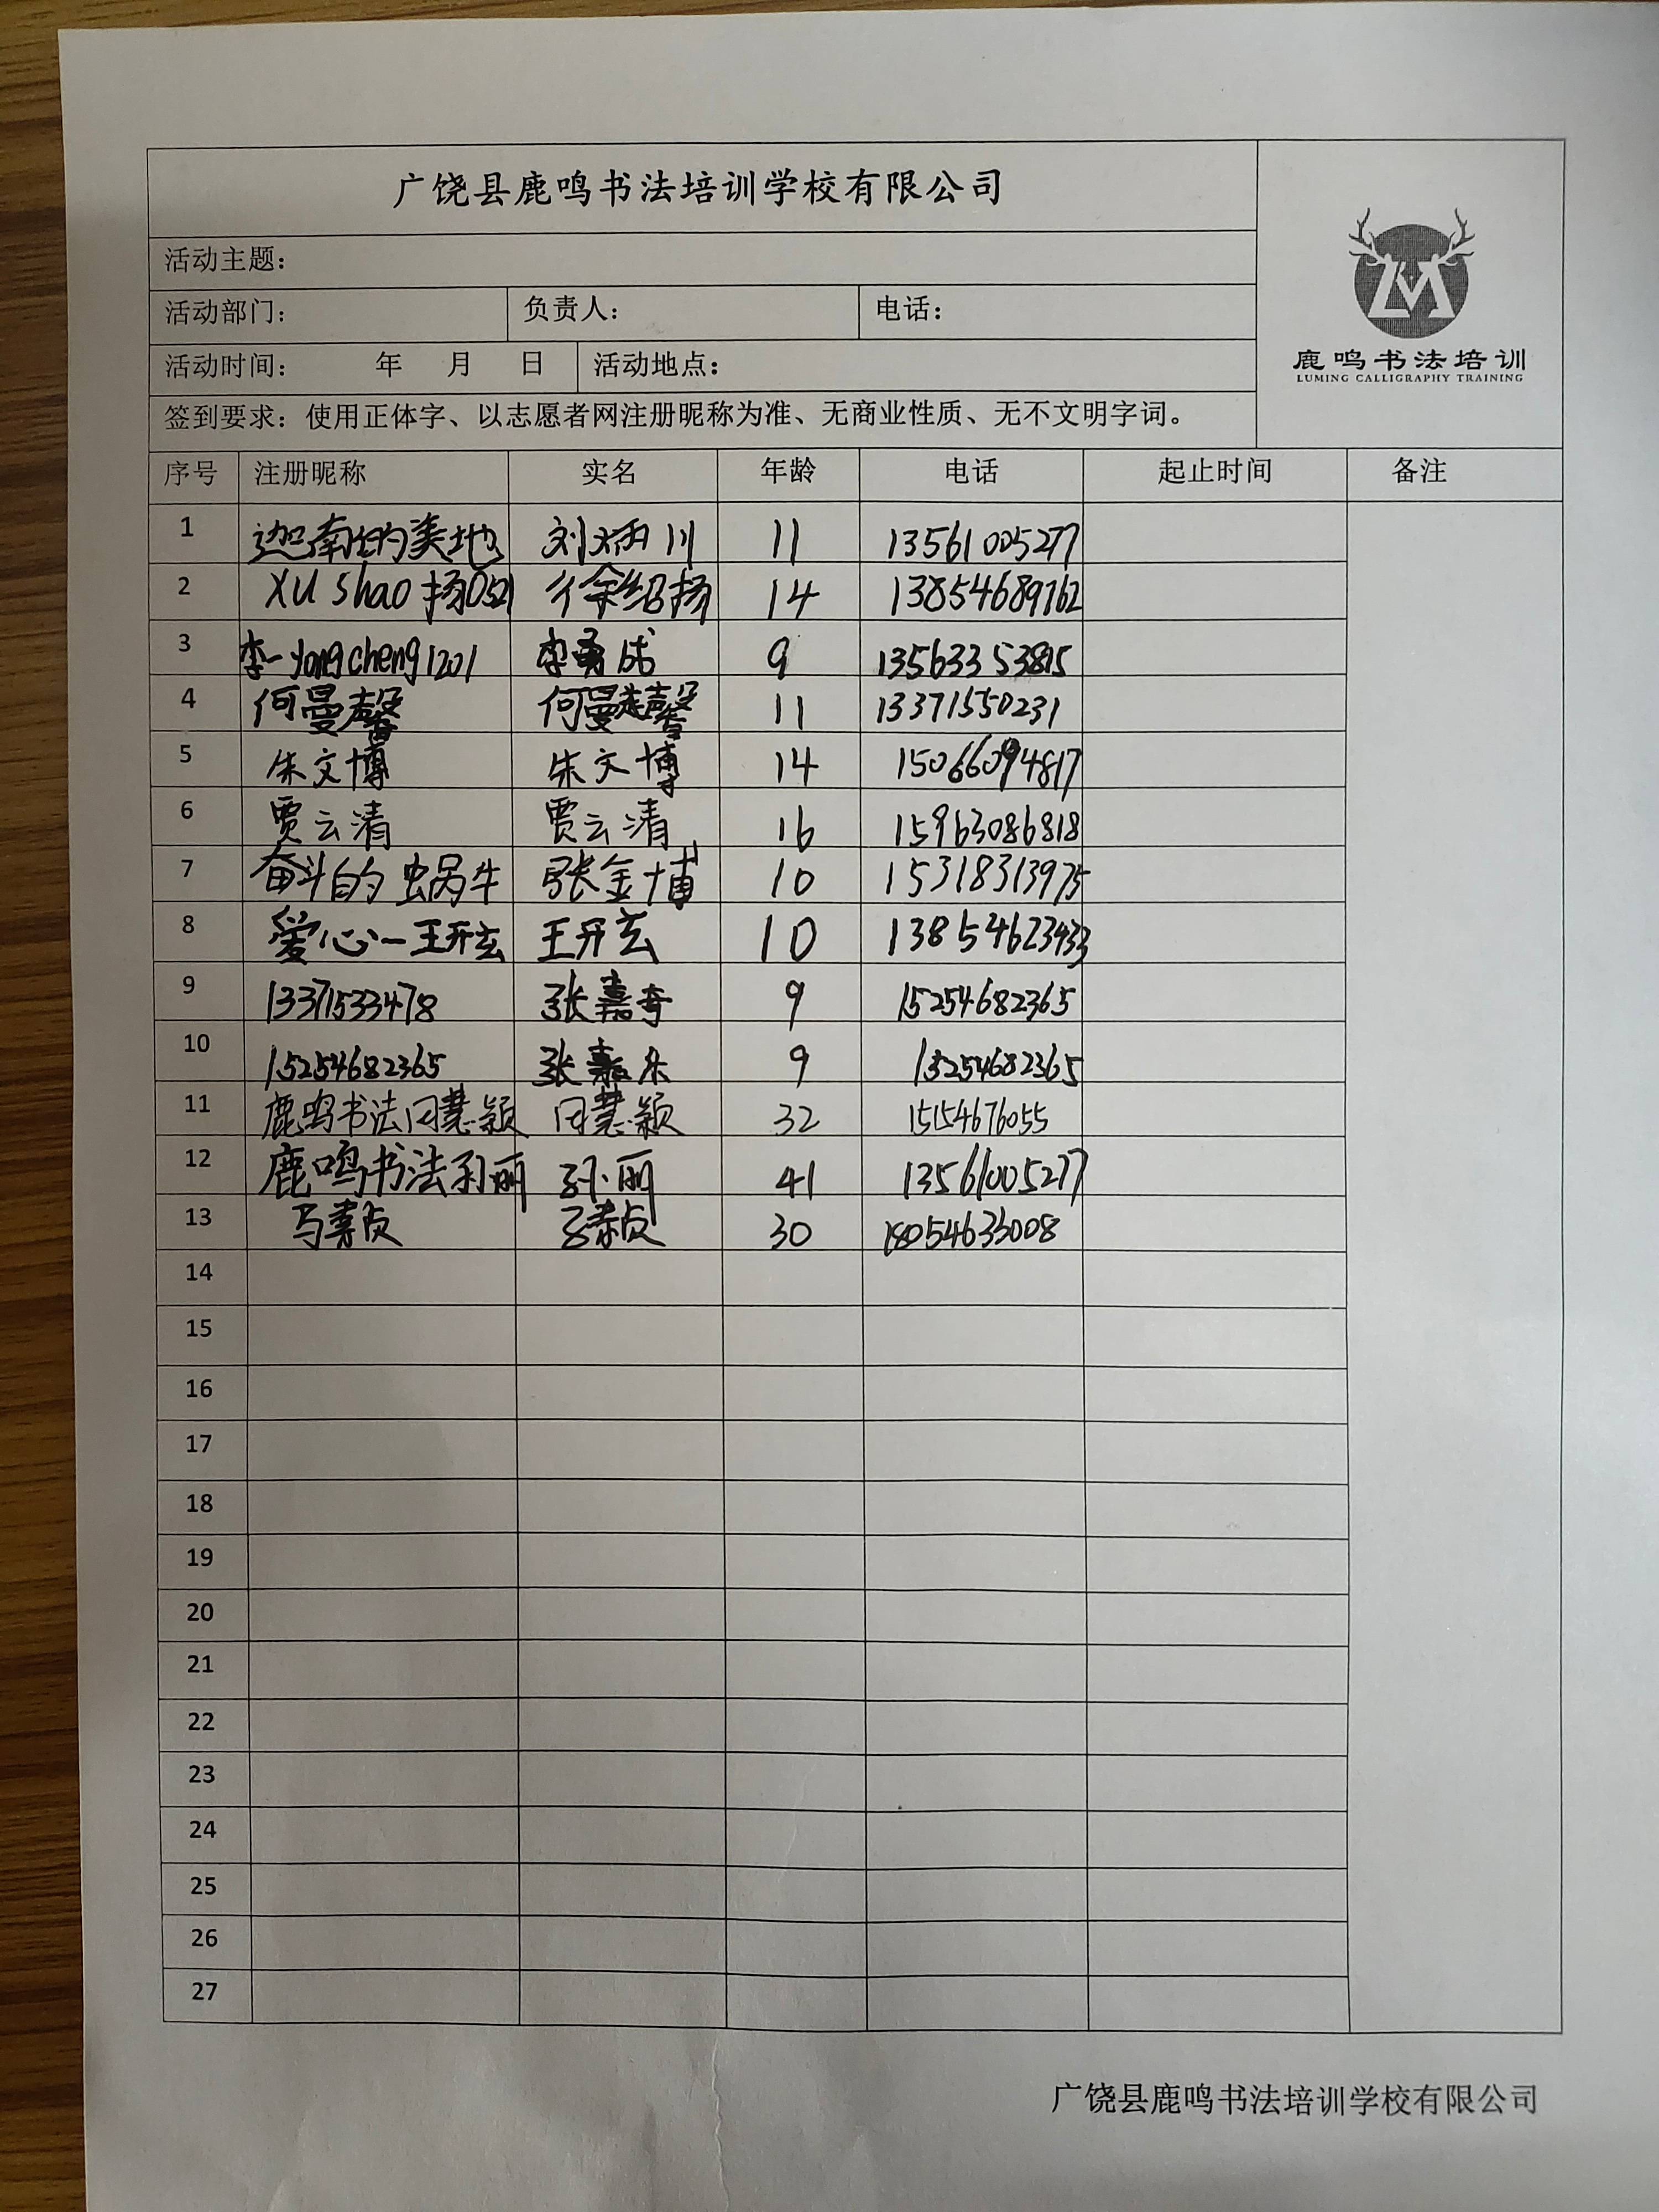 广饶县鹿鸣书法培训学校有限公司
鹿鸣书法培训
LUMING CALLIGRAPHY TRAINING
活动主题：
活动部门： 负责人： 电话：
活动时间： 年 月 日 活动地点：
签到要求：使用正体字、以志愿者网注册昵称为准、无商业性质、无不文明字词。
序号 注册昵称 实名 年龄 电话 起止时间 备注
1 迦南的美地 刘炳川 11 13561005277
2 XU shao 扬0521 徐绍扬 14 13854689762
3 李一yongcheng1201 李勇成 9 13563353815
4 何曼馨 何曼馨 11 13371550231
5 朱文博 朱文博 14 15066094817
6 贾云清 贾云清 16 15963086818
7 奋斗的蜗牛 张金博 10 15318313975
8 爱心一王开玄 王开玄 10 13854623433
9 13371533478 张嘉奇 9 15254682365
10 15254682365 张嘉乐 9 13254682365
11 鹿鸣书法闫慧颖 闫慧颖 32 15154676055
12 鹿鸣书法孙丽 孙丽 41 13561005277
13 马素贞 马素贞 30 18054633008
14
15
16
17
18
19
20
21
22
23
24
25
26
27
广饶县鹿鸣书法培训学校有限公司